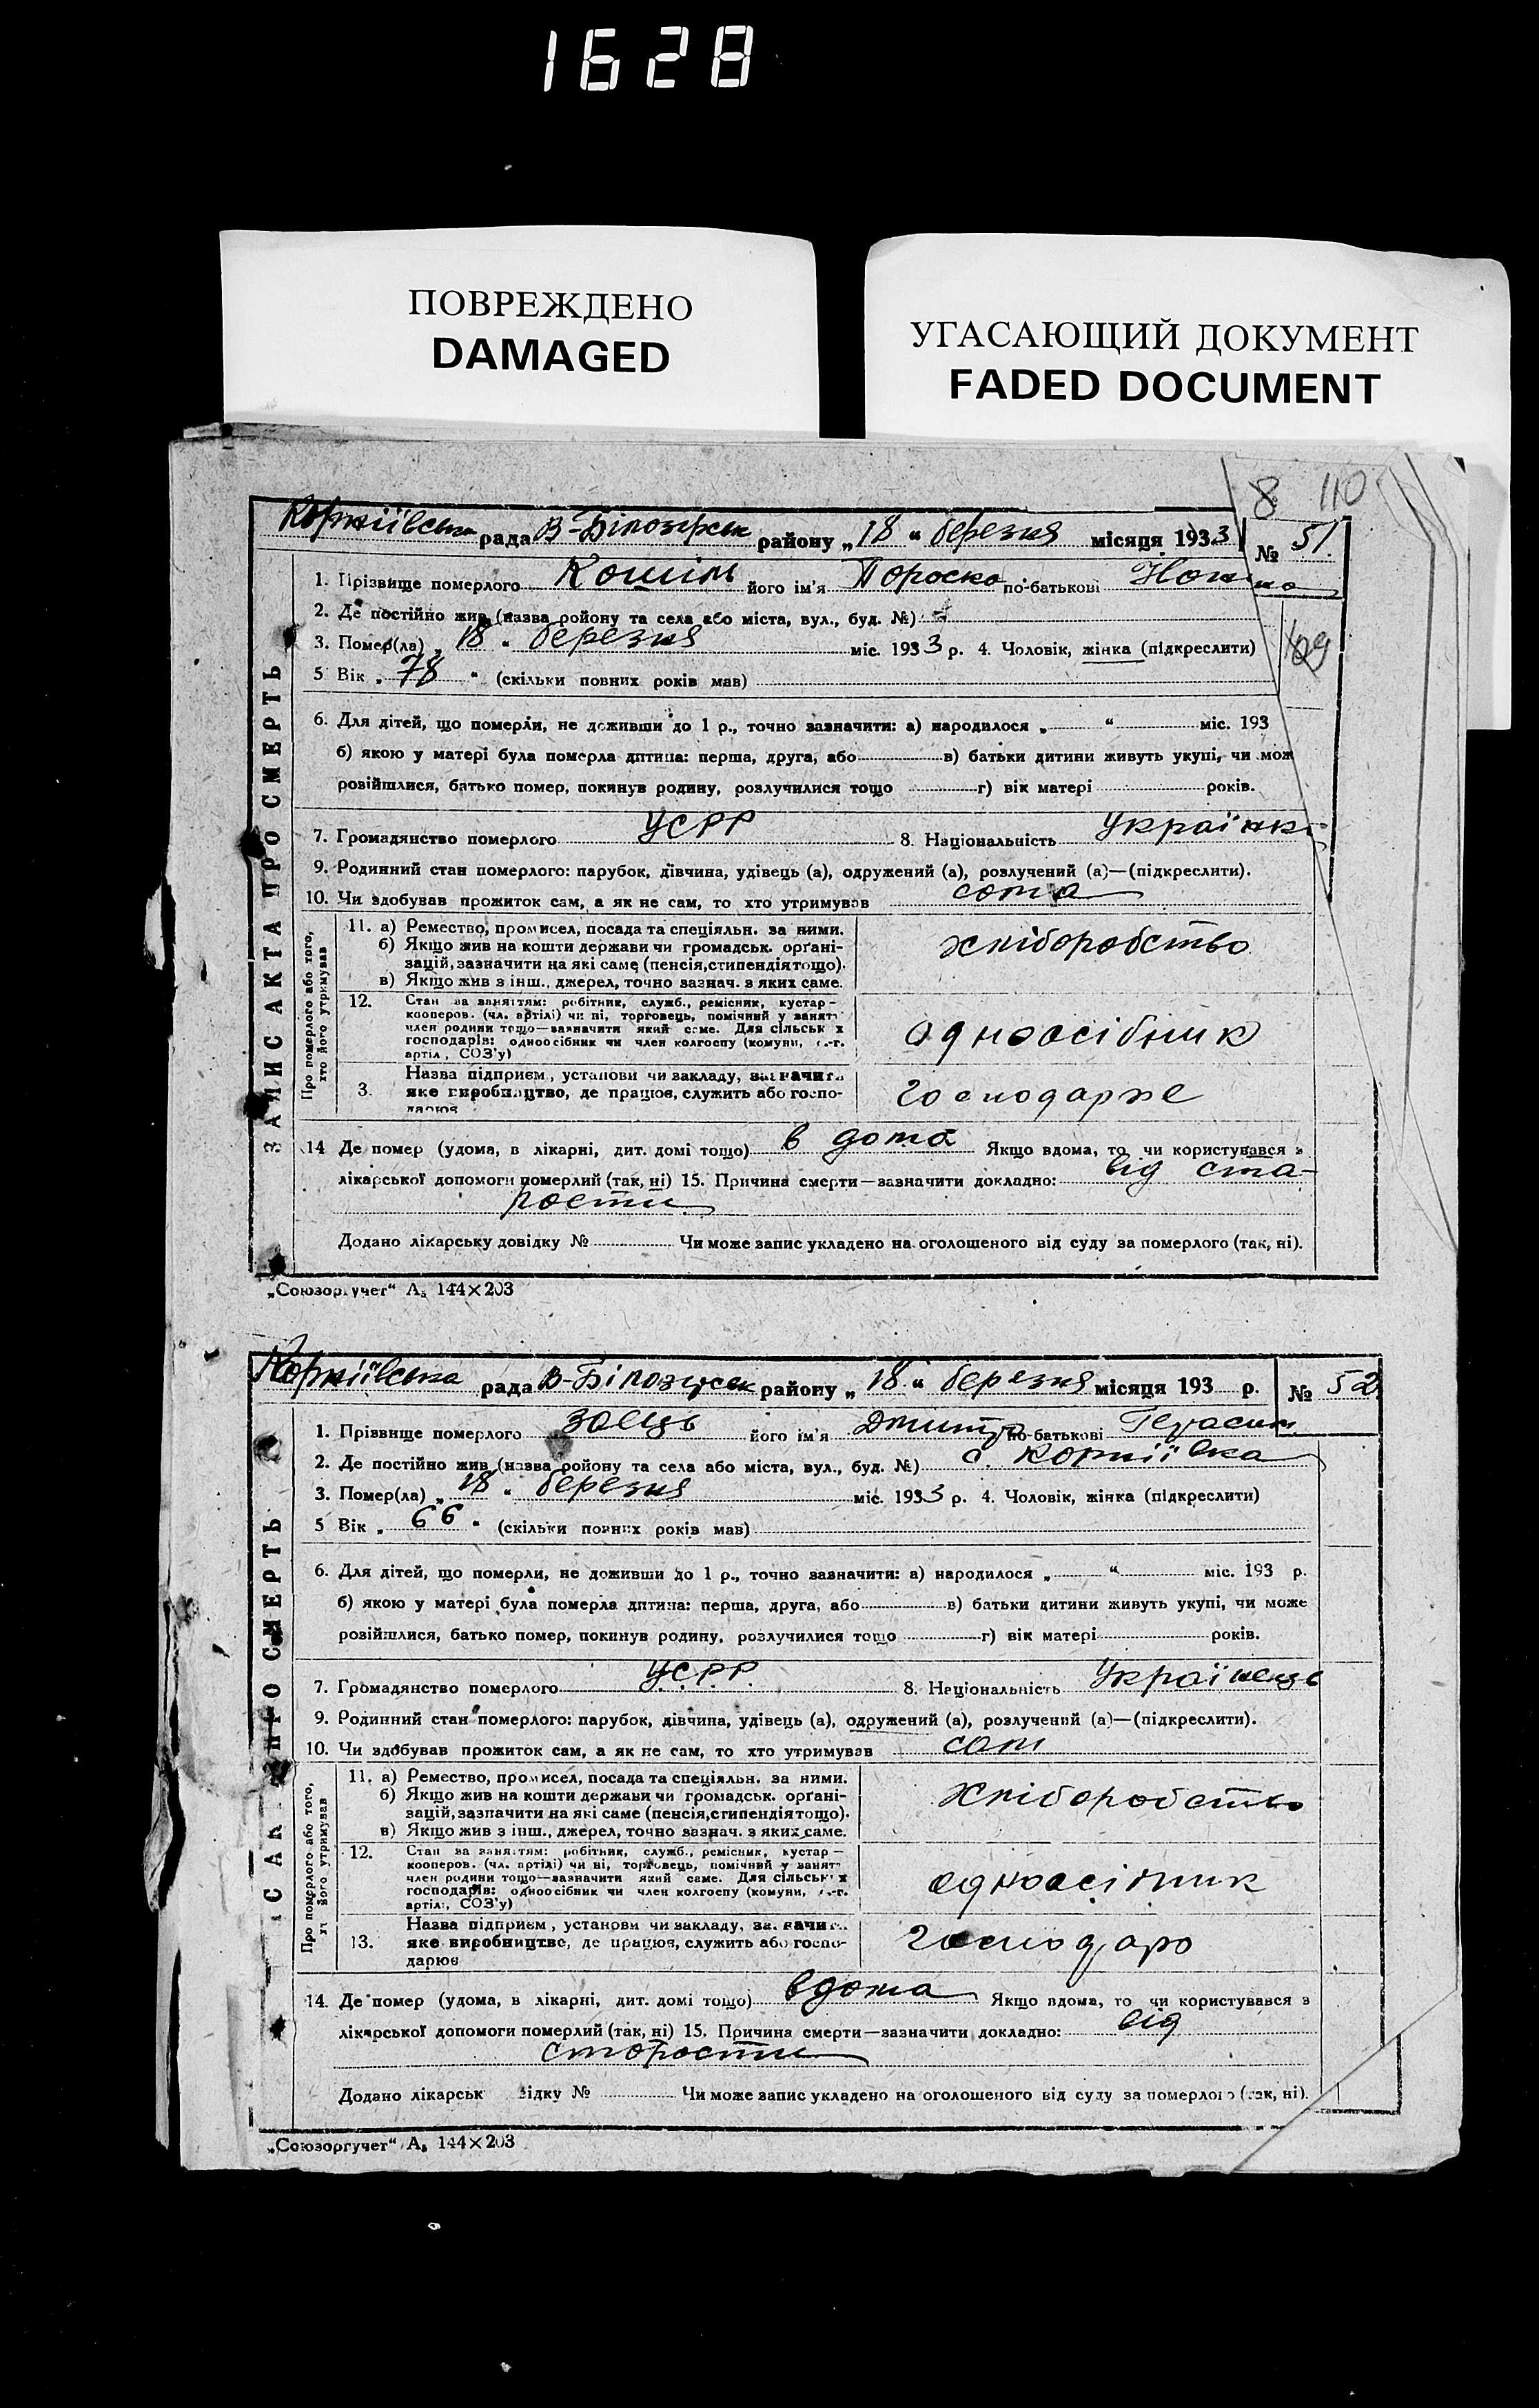 1628
ПОВРЕЖДЕНО
DAMAGED
УГАСАЮЩИЙ ДОКУМЕНТ
FADED DOCUMENT
8 110
Корніївська рада В-Білозерськ району „18“ березня місяця 1933 № 51.
ЗАПИС АКТА ПРО СМЕРТЬ
1. Прізвище померлого Кошіль його ім'я Пороска по-батькові
2. Де постійно жив (назва ройону та села або міста, вул., буд. №)
3. Помер(ла) „18“ березня міс. 1933 р. 4. Чоловік, жінка (підкреслити)
5 Вік „78“ (скільки повних років мав)
6. Для дітей, що померли, не доживши до 1 р., точно зазначити: а) народилося „ “ міс. 193
б) якою у матері була померла дитина: перша, друга, або в) батьки дитини живуть укупі, чи мож
розійшлися, батько помер, покинув родину, розлучилися тощо г) вік матері років.
7. Громадянство померлого УСРР 8. Національність Українк
9. Родинний стан померлого: парубок, дівчина, удівець (а), одружений (а), розлучений (а)—(підкреслити).
10. Чи здобував прожиток сам, а як не сам, то хто утримував сома
Про померлого або того, хто його утримував
11. а) Ремество, промисел, посада та спеціяльн. за ними.
б) Якщо жив на кошти держави чи громадськ. орґані-
зацій, зазначити на які саме (пенсія, стипендія тощо).
в) Якщо жив з інш., джерел, точно зазнач. з яких саме.
хліборобство
12. Стан за заняттям: робітник, служб., ремісник, кустар—
кооперов. (чл. артілі) чи ні, торговець, помічний у занят
член родини тощо—зазначити який саме. Для сільськ х
господарів: одноосібник чи член колгоспу (комуни, с.-г.
артіл, СОЗ'у)
одноосібник
3. Назва підприєм, установи чи закладу, зазначити
яке виробництво, де працює, служить або госпо-
дарює
господарже
14 Де помер (удома, в лікарні, дит. домі тощо) в дома Якщо вдома, то чи користувався з
лікарської допомоги померлий (так, ні) 15. Причина смерти—зазначити докладно: від ста-
рости
Додано лікарську довідку № Чи може запис укладено на оголошеного від суду за померлого (так, ні).
„Союзоргучет“ А₅ 144×203
Корніївська рада В-Білозерськ району „18“ березня місяця 193 р. № 52.
1. Прізвище померлого Заєць його ім'я Дмитро по-батькові Герасим
2. Де постійно жив (назва ройону та села або міста, вул., буд. №) с. Корніївка
3. Помер(ла) „18“ березня міс. 1933 р. 4. Чоловік, жінка (підкреслити)
5 Вік „66“ (скільки повних років мав)
6. Для дітей, що померли, не доживши до 1 р., точно зазначити: а) народилося „ “ міс. 193 р.
б) якою у матері була померла дитина: перша, друга, або в) батьки дитини живуть укупі, чи може
розійшлися, батько помер, покинув родину, розлучилися тощо г) вік матері років.
7. Громадянство померлого У.С.Р.Р. 8. Національність Українець
9. Родинний стан померлого: парубок, дівчина, удівець (а), одружений (а), розлучений (а)—(підкреслити).
10. Чи здобував прожиток сам, а як не сам, то хто утримував сам
Про померлого або того, хто його утримував
11. а) Ремество, промисел, посада та спеціяльн. за ними.
б) Якщо жив на кошти держави чи громадськ. орґані-
зацій, зазначити на які саме (пенсія, стипендія тощо).
в) Якщо жив з інш., джерел, точно зазнач. з яких саме.
Хліборобство
12. Стан за заняттям: робітник, служб., ремісник, кустар—
кооперов. (чл. артілі) чи ні, торговець, помічний у занят
член родини тощо—зазначити який саме. Для сільськ х
господарів: одноосібник чи член колгоспу (комуни, с.-г.
артіл, СОЗ'у)
одноосібник
13. Назва підприєм, установи чи закладу, зазначити
яке виробництво, де працює, служить або госпо-
дарює
господаро
14. Де помер (удома, в лікарні, дит. домі тощо) вдома Якщо вдома, то чи користувався з
лікарської допомоги померлий (так, ні) 15. Причина смерти—зазначити докладно: від
старости
Додано лікарськ відку № Чи може запис укладено на оголошеного від суду за померлого (так, ні).
„Союзоргучет“ А₅ 144×203